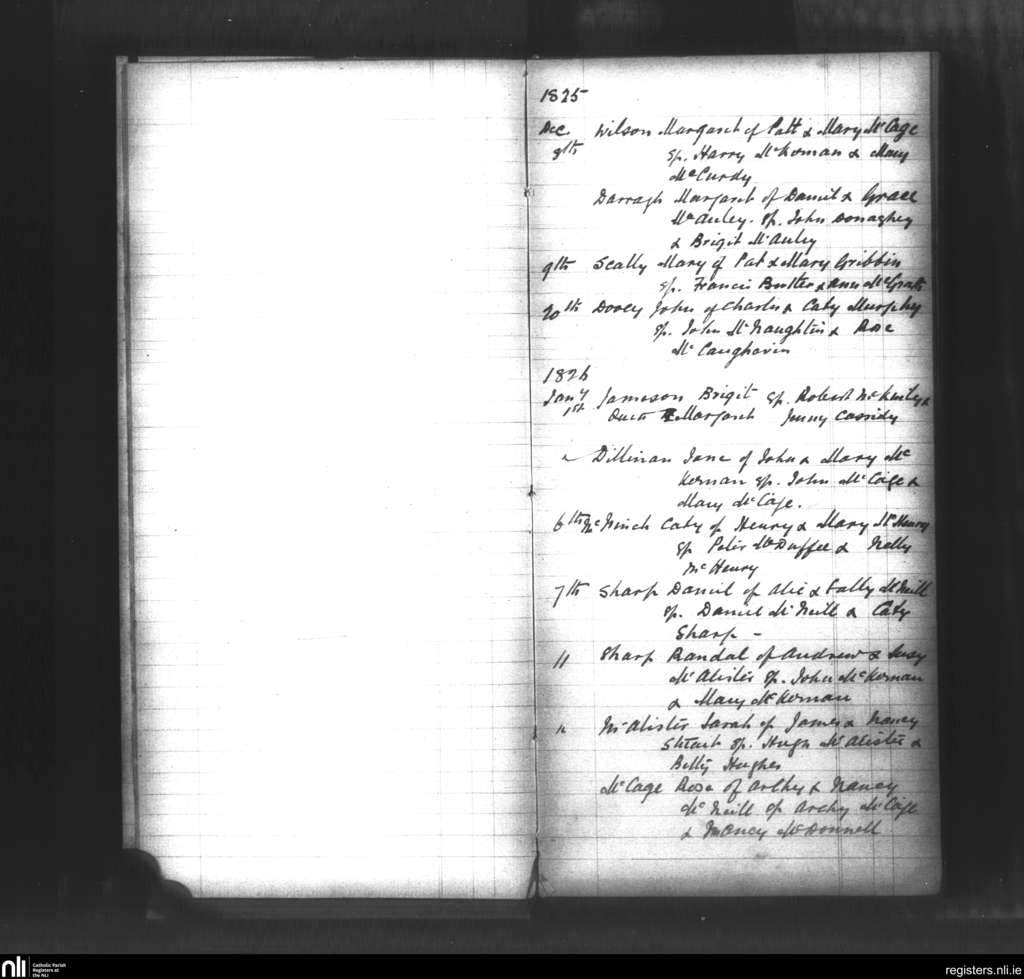 1825
Dec. 9th Wilson Margaret of Patt & Mary McCage
sp. Harry McKernan & Mary
McCurdy
Darragh Margaret of Daniel & Grace
McAuley. sp. John Donaghey
& Brigit McAuley
9th Scally Mary of Pat & Mary Gribbin
sp. Francis Butler & Ann McGrath
20th Dovey John of Charles & Caty Murphey
sp. John McNaughtin & Rose
McCaugherin
1826
Jany 1st Jameson Brigit sp. Robert McKinley &
Margaret Jenny Cassidy
" Dillinan Jane of John & Mary Mc
Kernan sp. John McCage &
Mary McCage.
6th McNinch Caty of Henry & Mary McHenry
sp Peter McDuffee & Nelly
McHenry
7th Sharp Daniel of Alic & Sally McNeill
sp. Daniel McNeill & Caty
Sharp -
11 Sharp Randal of Andrew & Susy
McAlister sp. John McKernan
& Mary McKernan
" McAlister Sarah of James & Nancy
Stewart sp. Hugh McAlister &
Betty Hughes
McCage Rose of Archy & Nancy
McNeill sp Archy McCage
& Nancy McDonnell
nli Catholic Parish
Registers at
the NLI
registers.nli.ie